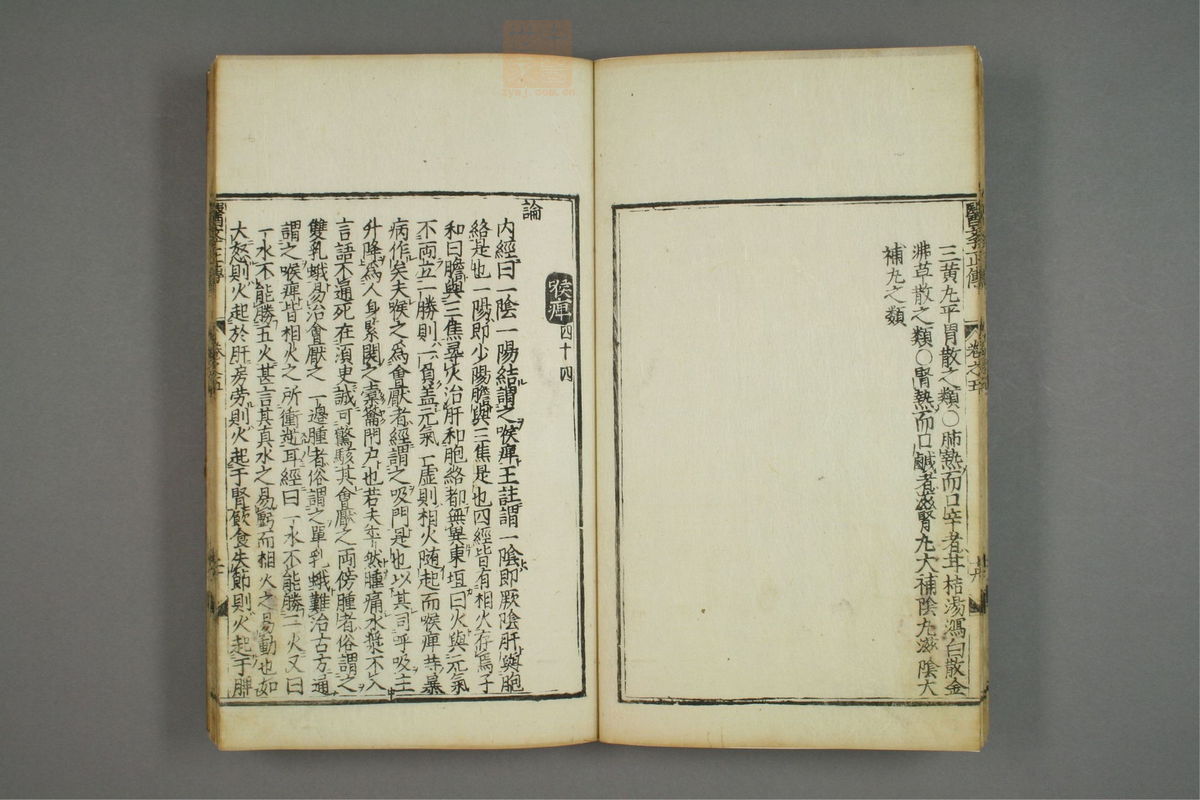 醫學正傳 卷之五
三黃丸平胃散之類○肺熱而口辛者甘桔湯瀉白散金
沸草散之類○腎熱而口鹹者滋腎丸大補陰丸滋陰大
補丸之類
喉痺 四十四
論
內經曰一陰一陽結謂之喉痺王註謂一陰即厥陰肝與胞
絡是也一陽即少陽膽與三焦是也四經皆有相火存焉子
和曰膽與三焦尋火治肝和胞絡都無異東垣曰火與元氣
不兩立一勝則一負盖元氣一虛則相火随起而喉痺等暴
病作矣夫喉之為會厭者經謂之吸門是也以其司呼吸主
升降為人身緊関之槖籥門户也若夫卒然腫痛水漿不入
言語不通死在須臾誠可驚駭其會厭之兩傍腫者俗謂之
雙乳蛾易治會厭之一邊腫者俗謂之單乳蛾難治古方通
謂之喉痺皆相火之所衝逆耳經曰一水不能勝二火又曰
一水不能勝五火甚言其真水之易虧而相火之易動也如
大怒則火起於肝房劳則火起于腎飲食失節則火起于脾
醫學正傳 卷之五